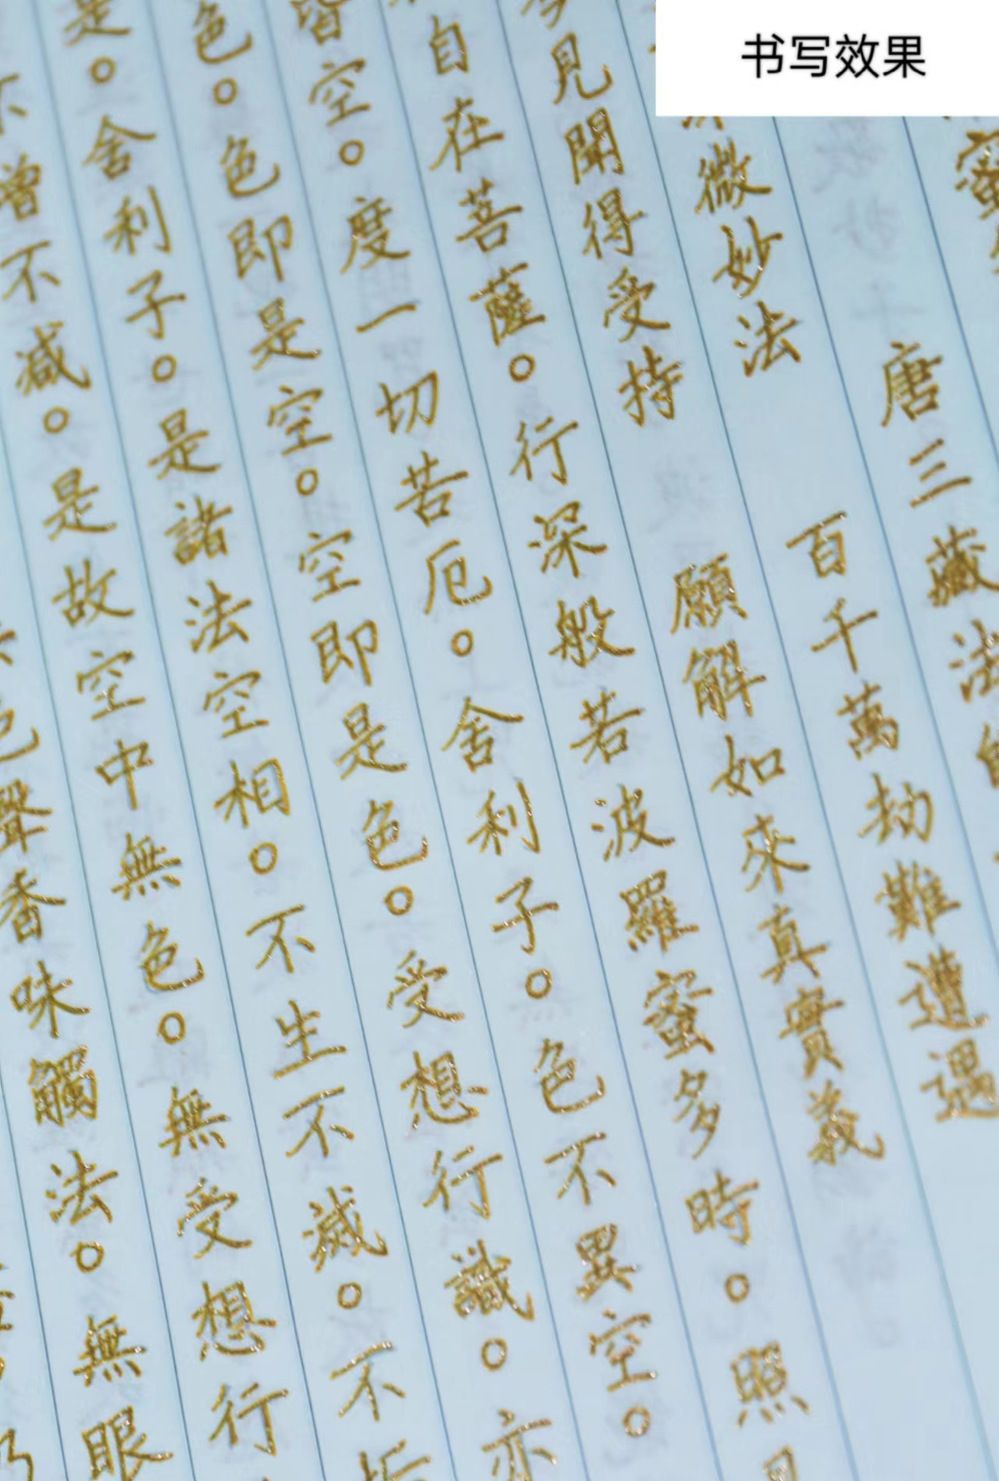 书写效果
蜜
唐三藏法
百千萬劫難遭遇
微妙法
願解如來真實義
見聞得受持
自在菩薩。行深般若波羅蜜多時。照見
皆空。度一切苦厄。舍利子。色不異空。
色。色即是空。空即是色。受想行識。亦
是。舍利子。是諸法空相。不生不滅。不
不增不減。是故空中無色。無受想行
色聲香味觸法。無眼